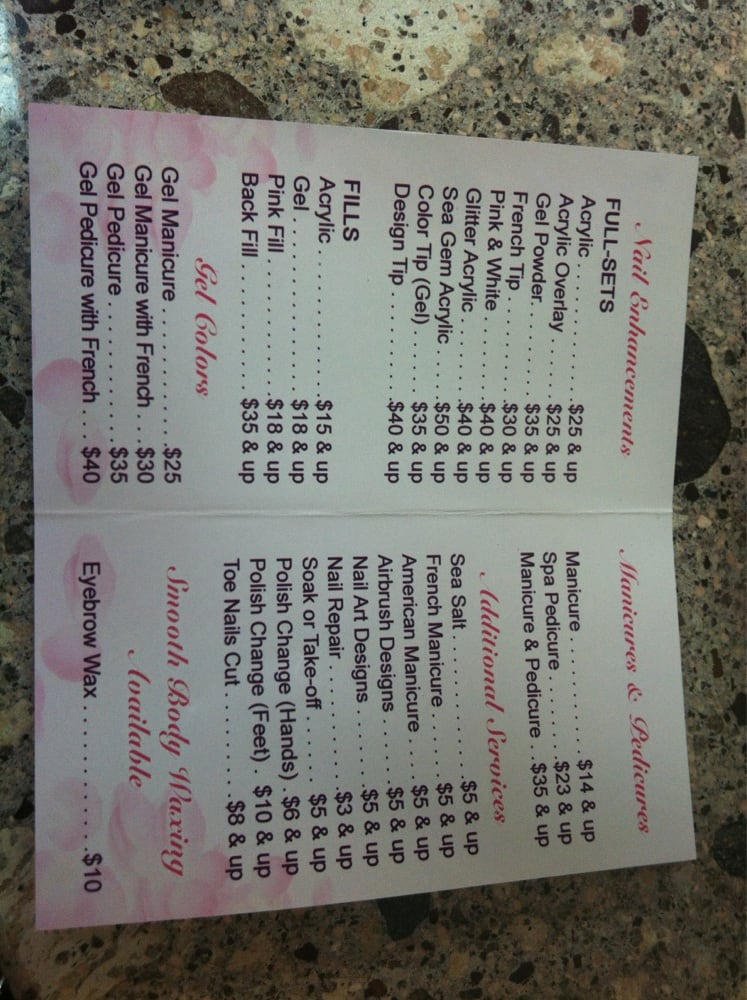 Nail Enhancements
FULL-SETS
Acrylic . . . . . . . . . . . . . .$25 & up
Acrylic Overlay . . . . . .$25 & up
Gel Powder. . . . . . . . . .$35 & up
French Tip. . . . . . . . . . .$30 & up
Pink & White . . . . . . . .$40 & up
Glitter Acrylic. . . . . . . .$40 & up
Sea Gem Acrylic . . . .$50 & up
Color Tip (Gel) . . . . . .$35 & up
Design Tip . . . . . . . . . .$40 & up
FILLS
Acrylic . . . . . . . . . . . . . .$15 & up
Gel . . . . . . . . . . . . . . . .$18 & up
Pink Fill . . . . . . . . . . . . .$18 & up
Back Fill . . . . . . . . . . . . $35 & up
Gel Colors
Gel Manicure . . . . . . . . . . . .$25
Gel Manicure with French . . .$30
Gel Pedicure. . . . . . . . . . . . .$35
Gel Pedicure with French. . . $40
Manicures & Pedicures
Manicure. . . . . . . . . . . . $14 & up
Spa Pedicure. . . . . . . . .$23 & up
Manicure & Pedicure . .$35 & up
Additional Services
Sea Salt. . . . . . . . . . . . . .$5 & up
French Manicure. . . . . . .$5 & up
American Manicure . . . . $5 & up
Airbrush Designs . . . . . . $5 & up
Nail Art Designs . . . . . . .$5 & up
Nail Repair. . . . . . . . . . . .$3 & up
Soak or Take-off . . . . . . $5 & up
Polish Change (Hands) .$6 & up
Polish Change (Feet) . $10 & up
Toe Nails Cut . . . . . . . . $8 & up
Smooth Body Waxing
Available
Eyebrow Wax. . . . . . . . . . . . .$10